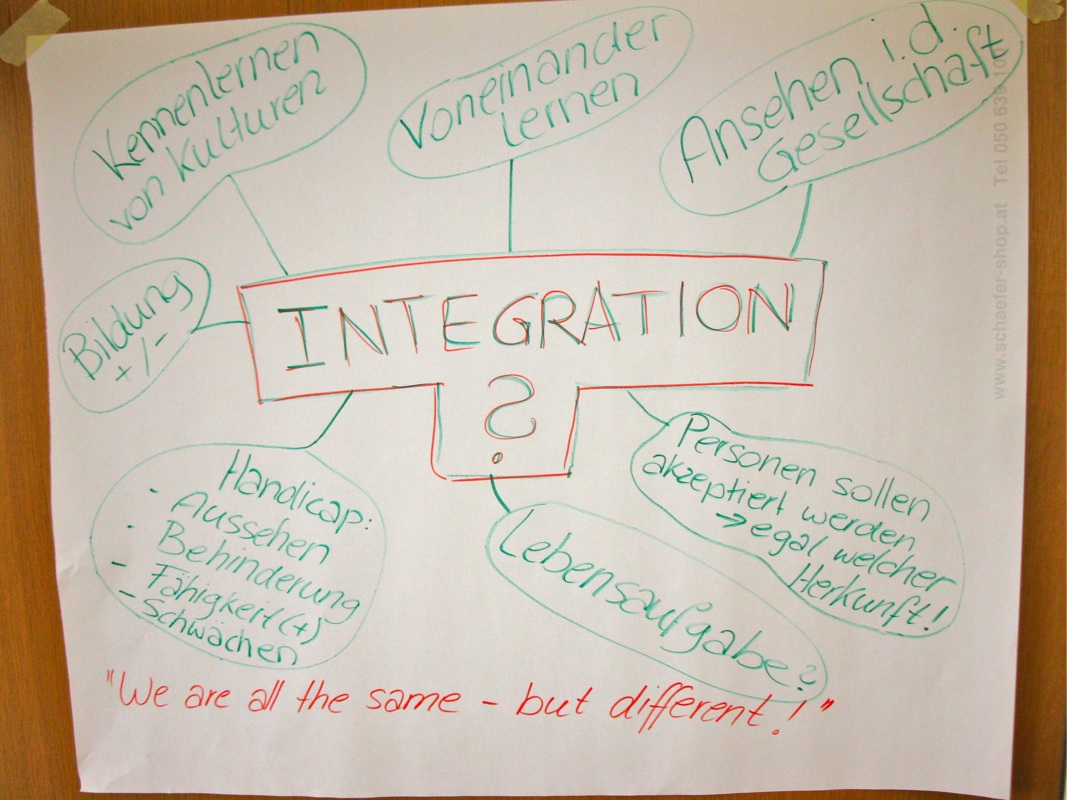 Kennenlernen
von Kulturen
Voneinander
lernen
Ansehen i.d.
Gesellschaft
Bildung
+/-
INTEGRATION
?
Handicap:
- Aussehen
- Behinderung
- Fähigkeit(+)
- Schwächen
Lebensaufgabe?
Personen sollen
akzeptiert werden
→ egal welcher
Herkunft!
"We are all the same - but different!"
www.schaefer-shop.at Tel 050 639 10